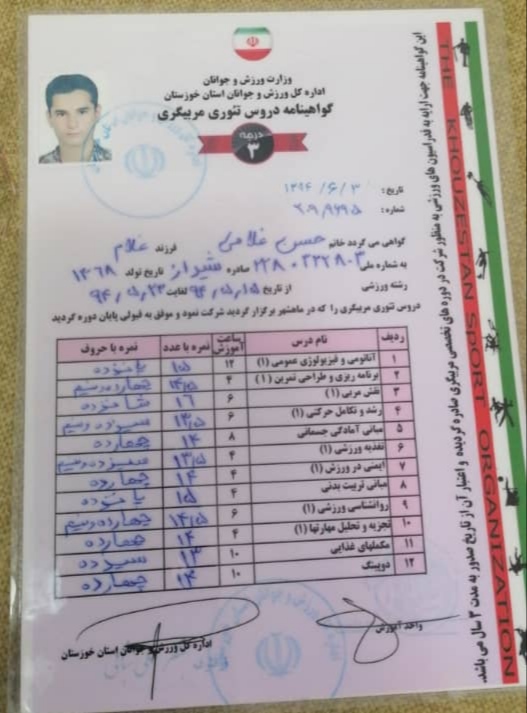 وزارت ورزش و جوانان
اداره کل ورزش و جوانان استان خوزستان
گواهینامه دروس تئوری مربیگری
درجه
۳
تاریخ: ۱۳۹۴/۶/۳
شماره:
گواهی می گردد خانم حسن غلامی فرزند غلام
به شماره ملی صادره شیراز تاریخ تولد ۱۳۶۸
رشته ورزشی از تاریخ ۹۴٫۵٫۱۵ لغایت ۹۴٫۵٫۲۳
دروس تئوری مربیگری را که در ماهشهر برگزار گردید شرکت نمود و موفق به قبولی پایان دوره گردید
ردیف نام درس ساعت آموزش نمره با عدد نمره با حروف
۱ آناتومی و فیزیولوژی عمومی (۱) ۱۲ ۱۵ پانزده
۲ برنامه ریزی و طراحی تمرین (۱) ۴ ۱۴/۵ چهارده ونیم
۳ نقش مربی (۱) ۶ ۱۶ شانزده
۴ رشد و تکامل حرکتی (۱) ۶ ۱۳٫۵ سیزده ونیم
۵ مبانی آمادگی جسمانی ۸ ۱۴ چهارده
۶ تغذیه ورزشی (۱) ۴ ۱۳٫۵ سیزده ونیم
۷ ایمنی در ورزش (۱) ۴ ۱۴ چهارده
۸ مبانی تربیت بدنی ۴ ۱۵ پانزده
۹ روانشناسی ورزشی (۱) ۶ ۱۴/۵ چهارده ونیم
۱۰ تجزیه و تحلیل مهارتها (۱) ۴ ۱۴ چهارده
۱۱ مکملهای غذایی ۱۰ ۱۳ سیزده
۱۲ دوپینگ ۱۰ ۱۴ چهارده
واحد آموزش
اداره کل ورزش و جوانان استان خوزستان
THE KHOUZESTAN SPORT ORGANIZATION
این گواهینامه جهت ارایه به فدراسیون های ورزشی به منظور شرکت در دوره های تخصصی مربیگری صادر گردیده و اعتبار آن از تاریخ صدور به مدت ۳ سال می باشد.